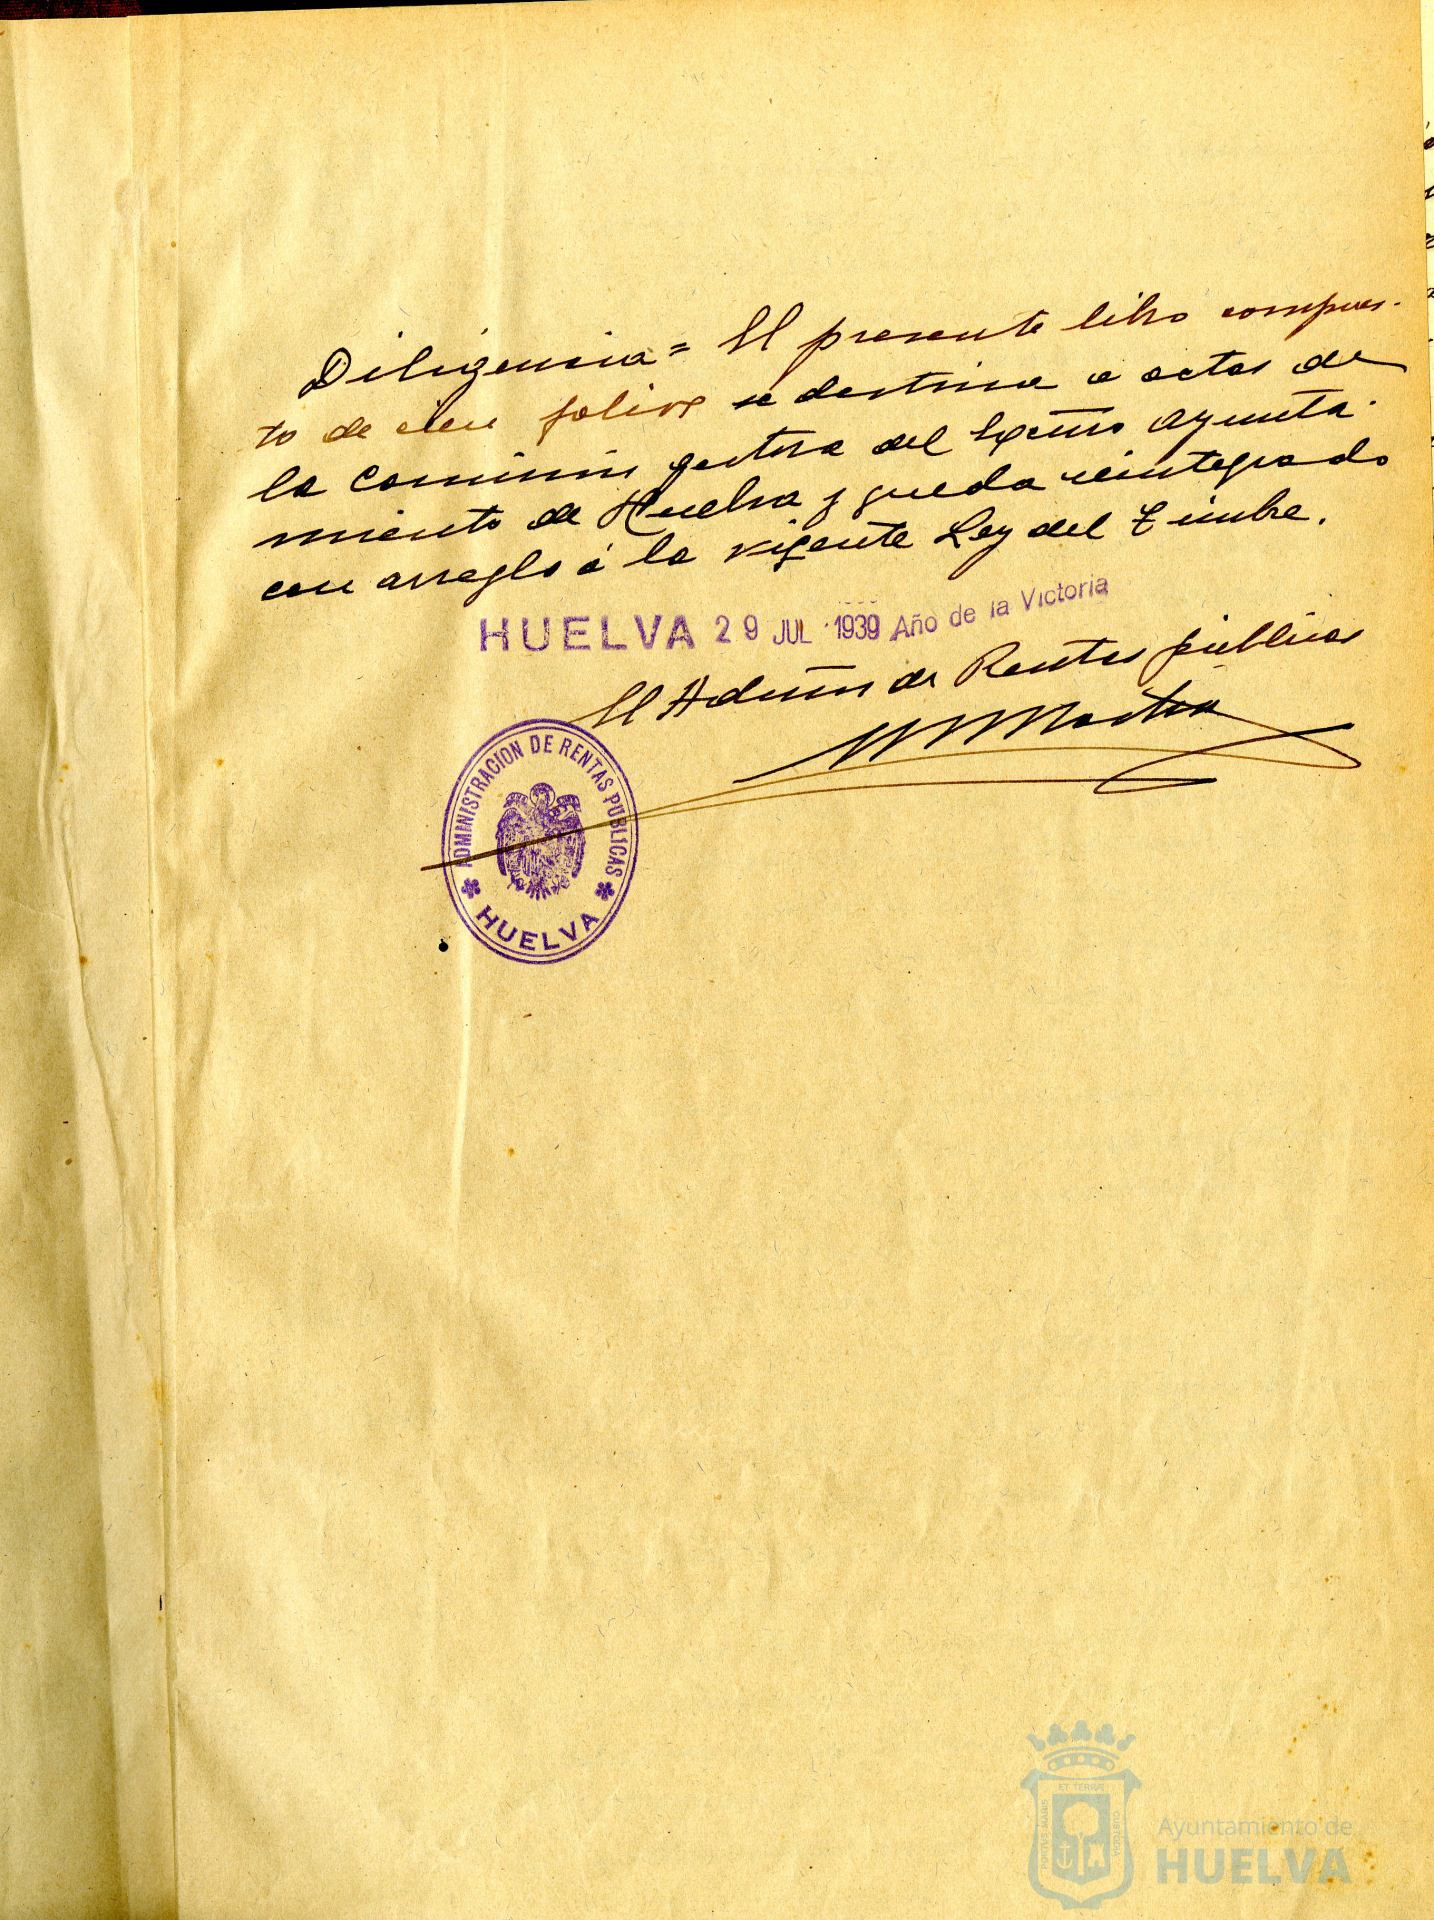 Diligencia = El presente libro compues-
to de cien folios se destina a actas de
la Comisión gestora del Excmo Ayunta-
miento de Huelva y queda reintegrado
con arreglo á la vigente Ley del Timbre.
HUELVA 29 JUL 1939 Año de la Victoria
El Admón de Rentas públicas
ADMINISTRACION DE RENTAS PUBLICAS
HUELVA
PORTUS MARIS ET TERRAE CUSTODIA
Ayuntamiento de
HUELVA